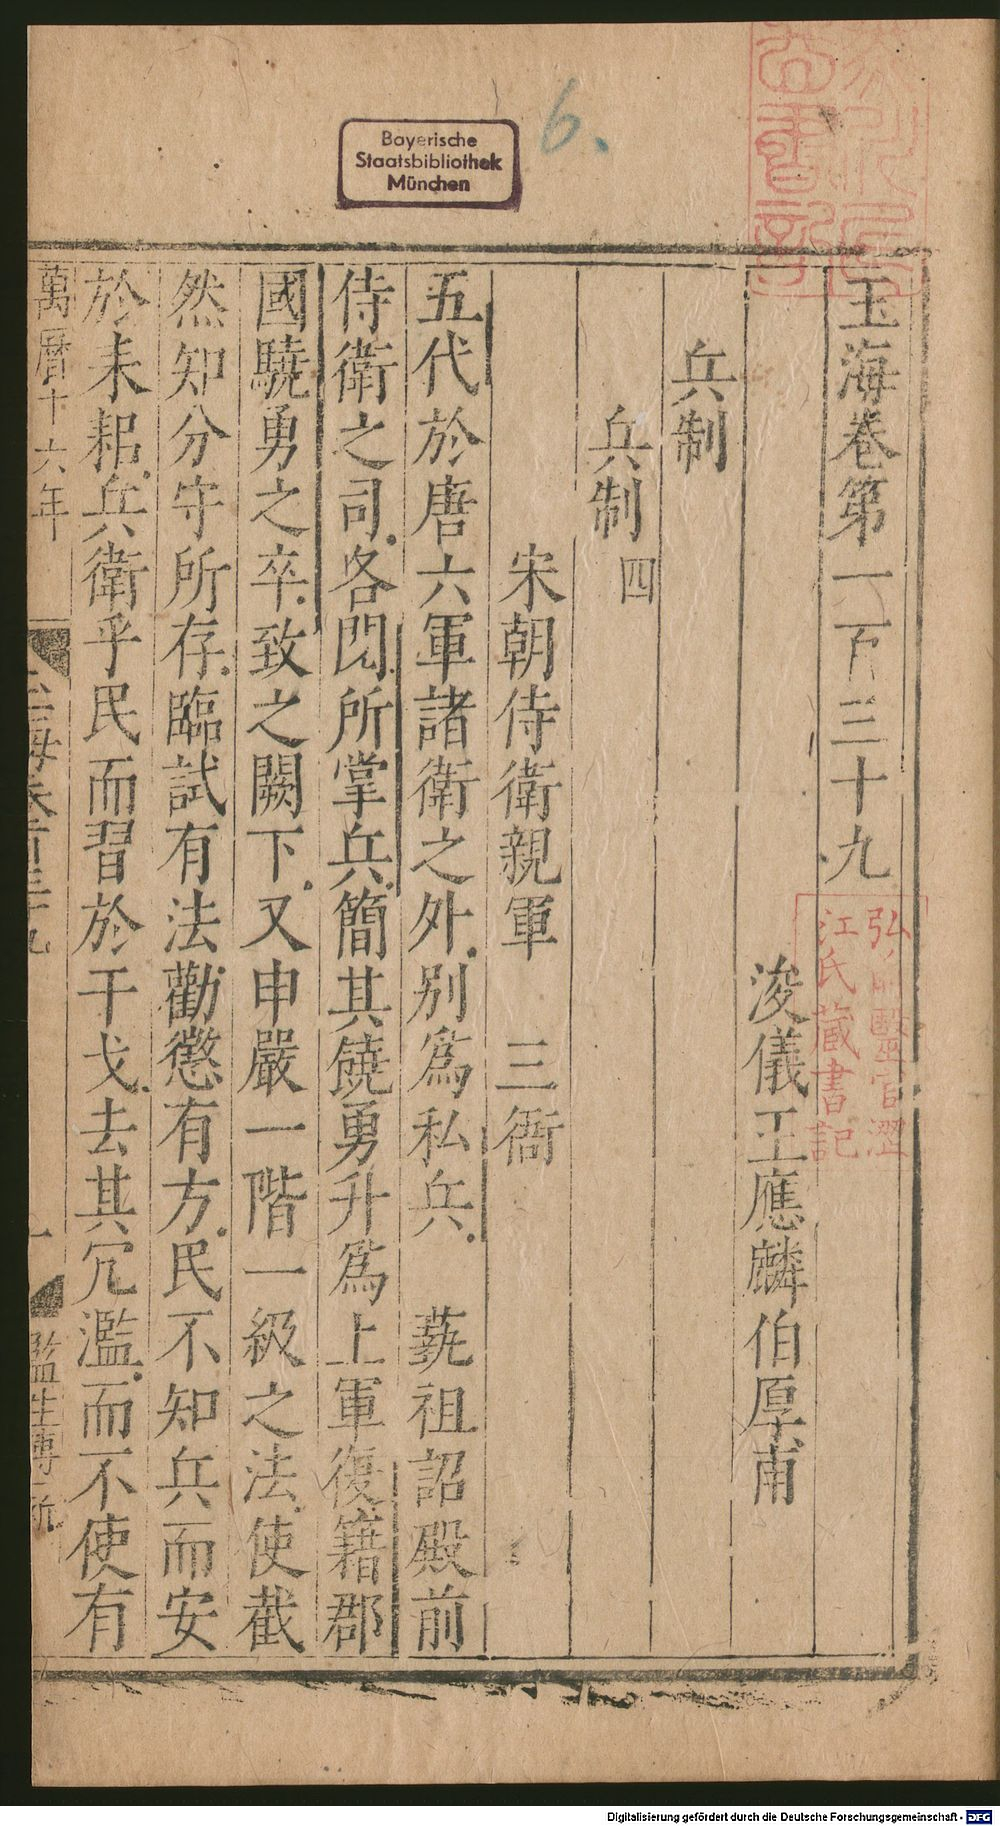 玉海卷第一百三十九
浚儀王應麟伯厚甫
兵制
兵制四
宋朝侍衛親軍 三衙
五代於唐六軍諸衛之外別爲私兵 蓺祖詔殿前
侍衛之司各閱所掌兵簡其饒勇升爲上軍復籍郡
國驍勇之卒致之闕下又申嚴一階一級之法使截
然知分守所存臨試有法勸懲有方民不知兵而安
於耒耜兵衛乎民而習於干戈去其冗濫而不使有
萬曆十六年
一
監生
弘前醫官澀
江氏藏書記
Bayerische
Staatsbibliothek
München
6.
Digitalisierung gefördert durch die Deutsche Forschungsgemeinschaft - DFG